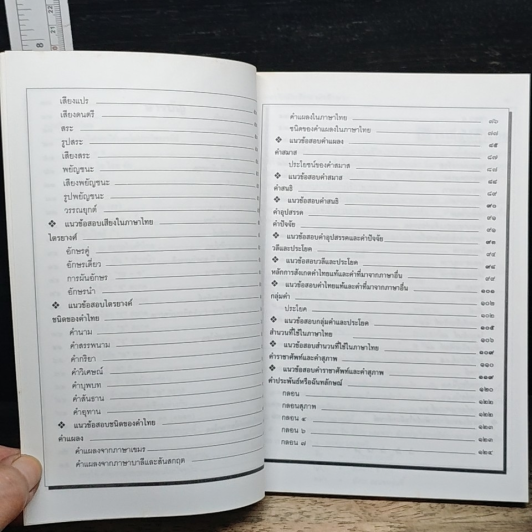 เสียงแปร
เสียงดนตรี
สระ
รูปสระ
เสียงสระ
พยัญชนะ
เสียงพยัญชนะ
รูปพยัญชนะ
วรรณยุกต์
❖ แนวข้อสอบเสียงในภาษาไทย
ไตรยางศ์
อักษรคู่
อักษรเดี่ยว
การผันอักษร
อักษรนำ
❖ แนวข้อสอบไตรยางศ์
ชนิดของคำไทย
คำนาม
คำสรรพนาม
คำกริยา
คำวิเศษณ์
คำบุพบท
คำสันธาน
คำอุทาน
❖ แนวข้อสอบชนิดของคำไทย
คำแผลง
คำแผลงจากภาษาเขมร
คำแผลงจากภาษาบาลีและสันสกฤต
คำแผลงในภาษาไทย ๗๖
ชนิดของคำแผลงในภาษาไทย ๗๗
❖ แนวข้อสอบคำแผลง
คำสมาส ๘๗
ประโยชน์ของคำสมาส ๘๗
❖ แนวข้อสอบคำสมาส ๘๘
คำสนธิ ๘๙
❖ แนวข้อสอบคำสนธิ ๙๐
คำอุปสรรค ๙๑
คำปัจจัย
❖ แนวข้อสอบคำอุปสรรคและคำปัจจัย
วลีและประโยค
❖ แนวข้อสอบวลีและประโยค
หลักการสังเกตคำไทยแท้และคำที่มาจากภาษาอื่น
❖ แนวข้อสอบคำไทยแท้และคำที่มาจากภาษาอื่น ๑๐๑
กลุ่มคำ ๑๐๒
ประโยค ๑๐๒
❖ แนวข้อสอบกลุ่มคำและประโยค ๑๐๕
สำนวนที่ใช้ในภาษาไทย ๑๐๖
❖ แนวข้อสอบสำนวนที่ใช้ในภาษาไทย ๑๐๙
คำราชาศัพท์และคำสุภาพ ๑๑๐
❖ แนวข้อสอบคำราชาศัพท์และคำสุภาพ ๑๑๙
คำประพันธ์หรือฉันทลักษณ์ ๑๒๐
กลอน ๑๒๒
กลอนสุภาพ ๑๒๒
กลอน ๔ ๑๒๓
กลอน ๖ ๑๒๓
กลอน ๗ ๑๒๔